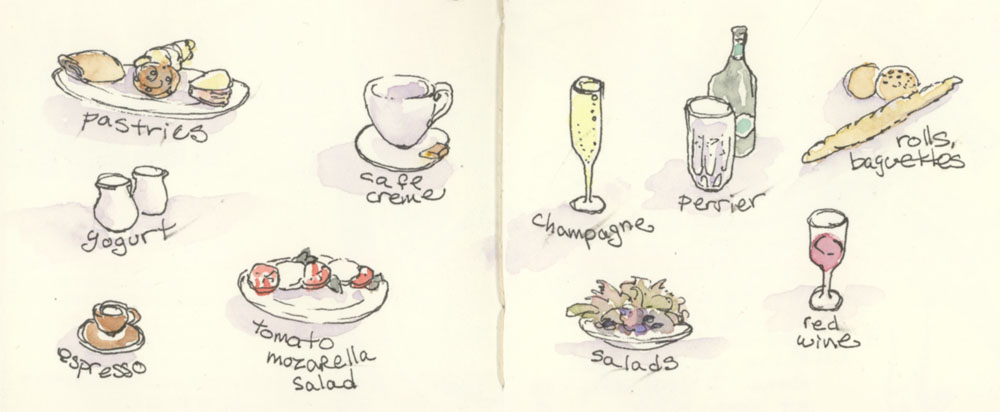 pastries
cafe
creme
yogurt
espresso
tomato
mozarella
salad
champagne
perrier
rolls,
baguettes
salads
red
wine